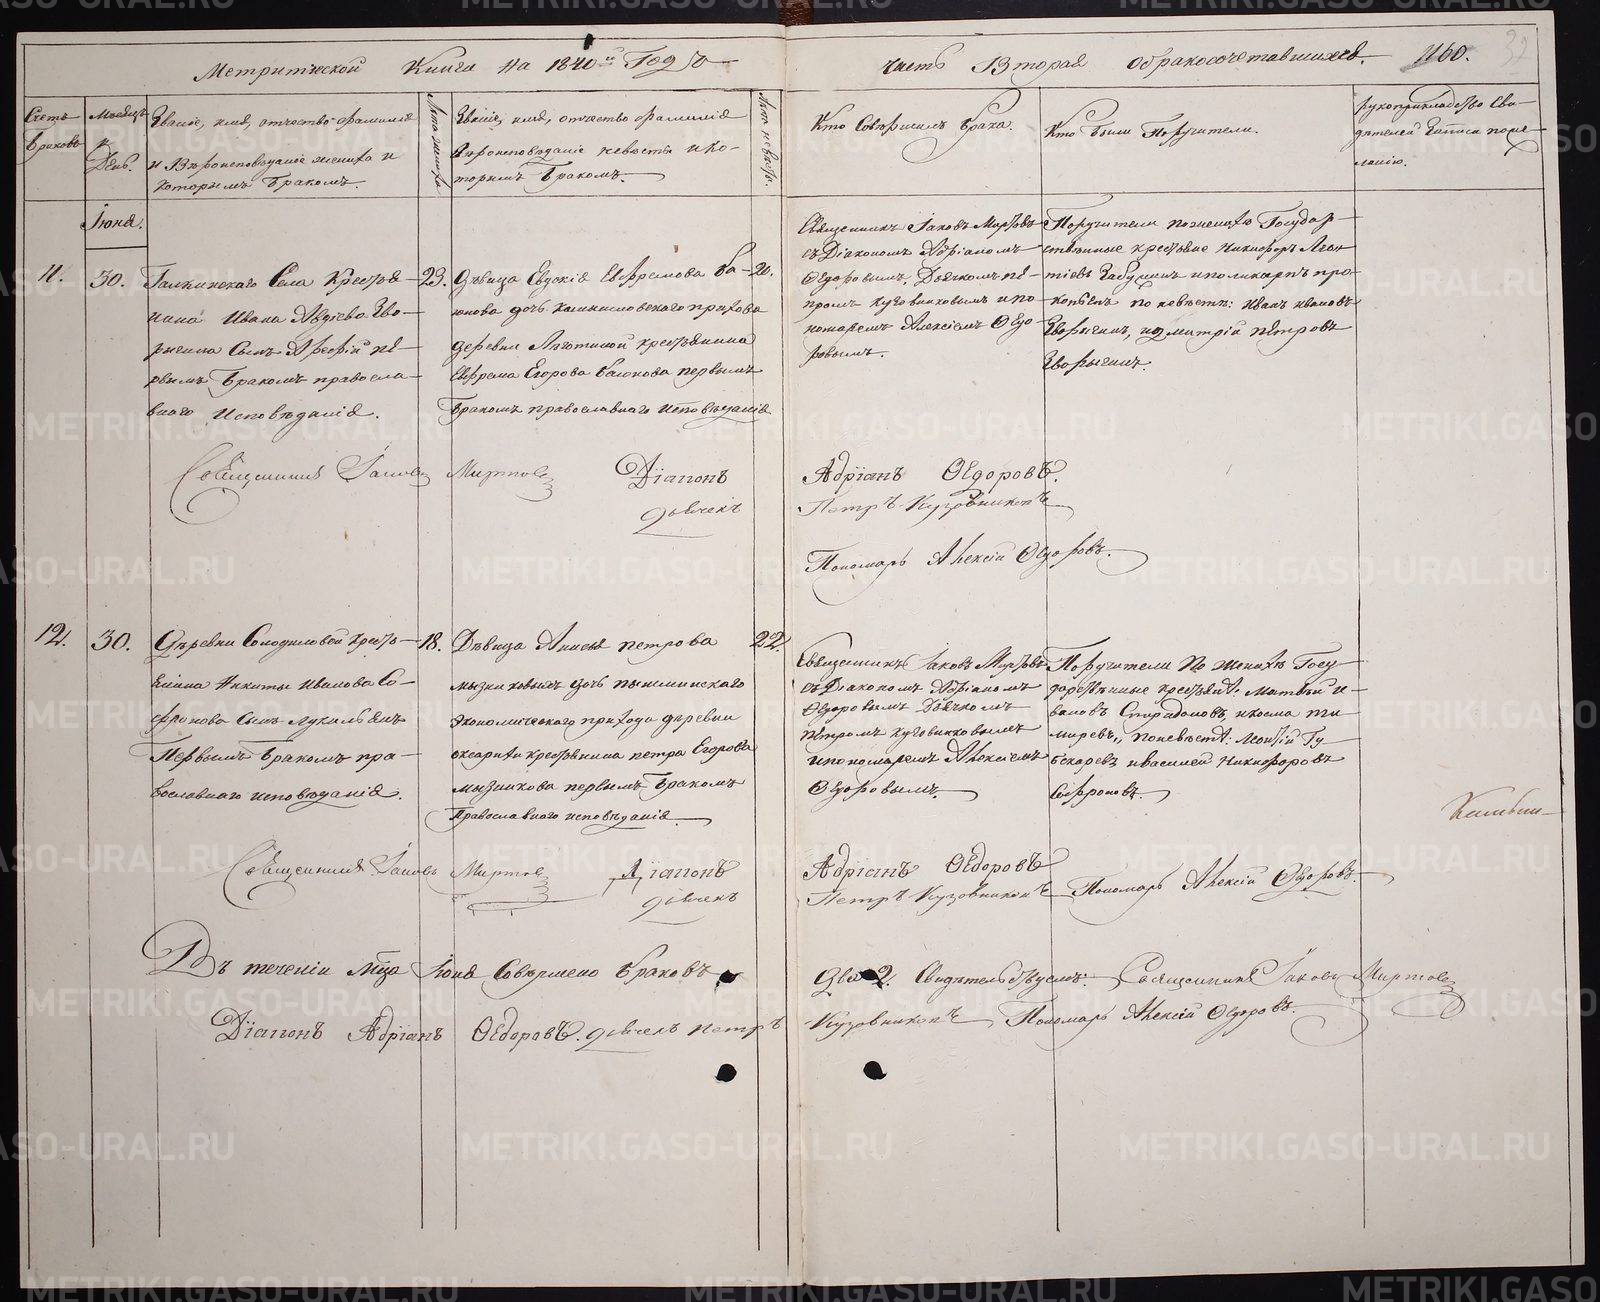 Метрической Книги на 1840й Годъ
часть Вторая о бракосочетавшихся.
1160.
32
Счетъ Браковъ
Месяцъ и День.
Званіе, имя, отчество фамилія
и Вѣроисповѣданіе жениха и
которымъ бракомъ.
Лѣта жениха
Званіе, имя, отчество фамилія
Вѣроисповѣданіе невѣсты и ко-
торымъ Бракомъ.
Лѣта невѣсты.
Кто Совершилъ Брака.
Кто Были Поручители.
рукоприкладство Сви-
дѣтелей Записи по же-
ланію.
Іюня.
11.
30.
Галкинскаго Села Крестья-
нина Ивана Авдіева Зво-
рыгина Сынъ Арефій пе-
рвымъ Бракомъ правосла-
внаго Исповѣданія.
23.
Дѣвица Евдокія Евфремова Ба-
юнова дочь Камышловскаго прихода
деревни Ляготиной крестьянина
Евфрема Егорова Баюнова первымъ
Бракомъ православнаго Исповѣданія
20.
Священникъ Іаковъ Миртовъ
съ Діакономъ Адріаномъ
Ѳедоровымъ, Дьячкомъ пе-
тромъ кузовниковымъ и по-
номаремъ Алексіемъ Ѳедо-
ровымъ.
Поручители по женихѣ Государ-
ственные крестьяне Никифоръ Леон-
тіевъ Забулинъ и поликарпъ про-
копьевъ по невѣстѣ: Иванъ ивановъ
Зворыгинъ, и дмитрій петровъ
Зворыгинъ.
Священникъ Іаковъ Миртовъ
Діаконъ Адріанъ Ѳедоровъ.
дьячекъ Петръ Кузовниковъ
Пономарь Алексій Ѳедоровъ.
12.
30.
Деревни Солодиловой крестья-
янина Никиты Иванова Со-
фронова Сынъ Лукильянъ
Первымъ Бракомъ пра-
вославнаго исповѣданія.
18.
Дѣвица Анисья петрова
мызниковыхъ дочь пышминскаго
Экономическаго прихода деревни
оксарихи крестьянина петра Егорова
мызникова первымъ Бракомъ
Православнаго исповѣданія.
22.
Священникъ Іаковъ Миртовъ
съ Діакономъ Адріаномъ
Ѳедоровымъ Дьячкомъ
петромъ кузовниковымъ
и пономаремъ Алексіемъ
Ѳедоровымъ.
Поручители По женихѣ Госу-
дарственные крестьянѣ: Матвѣй и-
вановъ Спиридоновъ, и косма ти-
миревъ, по невѣстѣ: Моисій Гу-
бскаревъ и василей Никифоровъ
Софроновъ.
Священникъ Іаковъ Миртовъ
Діаконъ Адріанъ Ѳедоровъ
дьячекъ Петръ Кузовниковъ Пономарь Алексій Ѳедоровъ.
Въ теченіи Мца Іюня Совершено Браковъ
Два 2. Свидѣтельствуемъ: Священникъ Іаковъ Миртовъ
Діаконъ Адріанъ Ѳедоровъ. дьячекъ Петръ
Кузовниковъ Пономарь Алексій Ѳедоровъ.